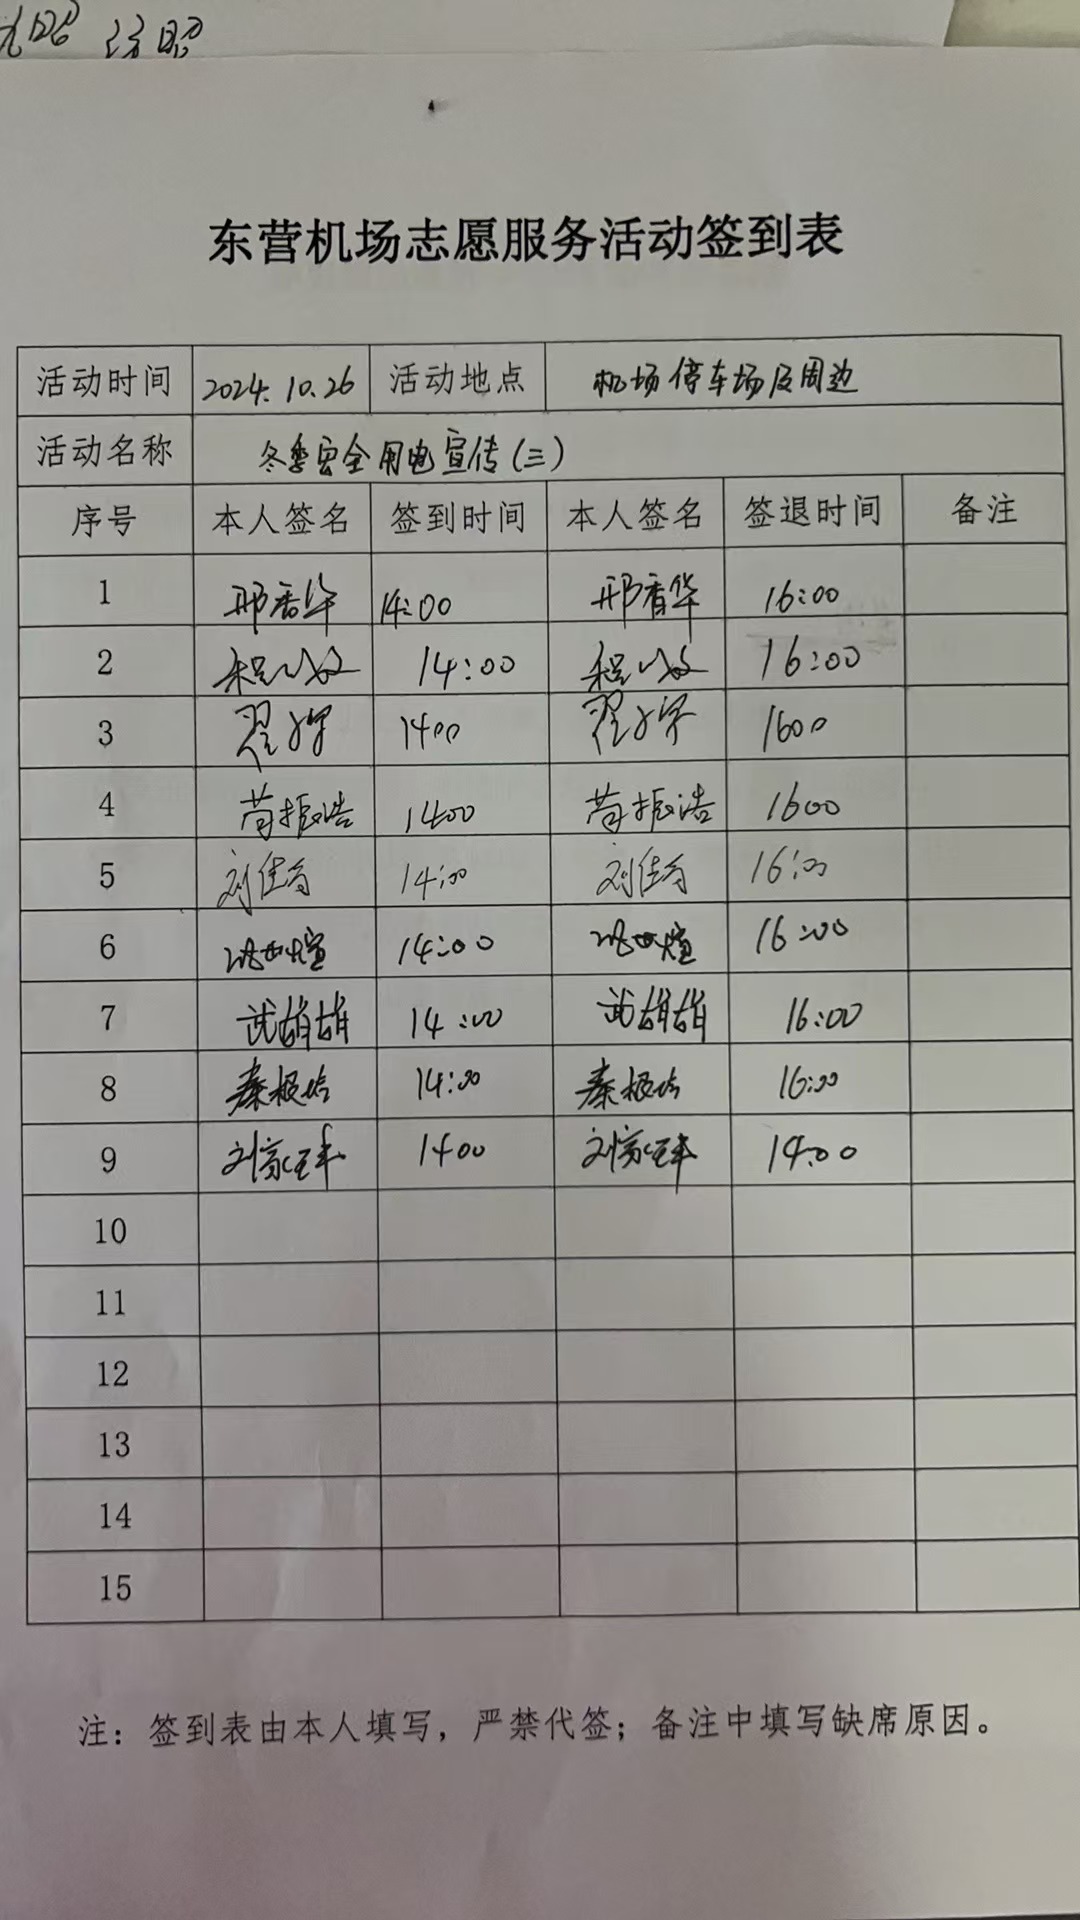 东营机场志愿服务活动签到表
活动时间 2024.10.26 活动地点 机场停车场及周边
活动名称 冬季安全用电宣传(三)
序号 本人签名 签到时间 本人签名 签退时间 备注
1 邢香华 14:00 邢香华 16:00
2 14:00 16:00
3 1400 1600
4 苘振浩 1400 苘振浩 1600
5 14:00 16:00
6 14:00 16:00
7 武娟娟 14:00 武娟娟 16:00
8 14:00 16:00
9 1400 14:00
10
11
12
13
14
15
注：签到表由本人填写，严禁代签；备注中填写缺席原因。